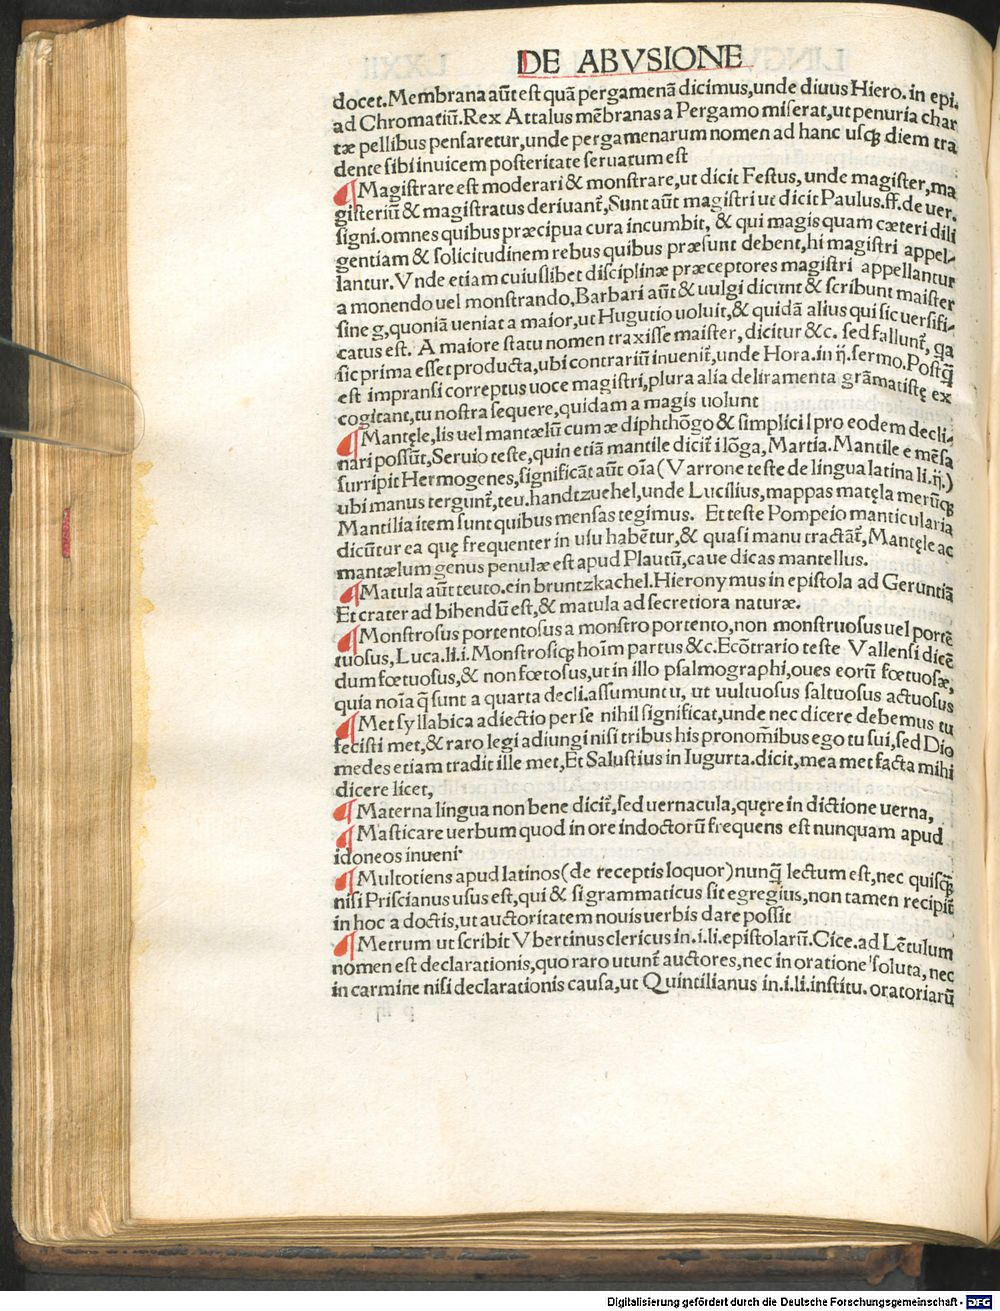 DE ABVSIONE
docet.Membrana aūt est quā pergamenā dicimus,unde diuus Hiero. in epi.
ad Chromatiū.Rex Attalus mēbranas a Pergamo miserat,ut penuria char
tæ pellibus pensaretur,unde pergamenarum nomen ad hanc usq; diem tra
dente sibi inuicem posteritate seruatum est
¶Magistrare est moderari & monstrare,ut dicit Festus, unde magister,ma
gisteriū & magistratus deriuant̄,Sunt aūt magistri ut dicit Paulus.ff.de uer.
signi.omnes quibus præcipua cura incumbit, & qui magis quam cæteri dili
gentiam & solicitudinem rebus quibus præsunt debent,hi magistri appel-
lantur.Vnde etiam cuiuslibet disciplinæ præceptores magistri appellantur
a monendo uel monstrando,Barbari aūt & uulgi dicunt & scribunt maister
sine g,quoniā ueniat a maior,ut Hugutio uoluit,& quidā alius qui sic uersifi-
catus est. A maiore statu nomen traxisse maister, dicitur &c. sed fallunt̄, qa
sic prima esset producta,ubi contrariū inuenit̄,unde Hora.in ij.sermo.Postq̄
est impransi correptus uoce magistri,plura alia deliramenta grāmatistę ex
cogitant,tu nostra sequere,quidam a magis uolunt
¶Mantęle,lis uel mantælū cum æ diphthōgo & simplici l pro eodem decli-
nari possūt,Seruio teste,quin etiā mantile dicit̄ i lōga, Martia. Mantile e mēsa
surripit Hermogenes,significāt aūt oīa (Varrone teste de lingua latina li.ij.)
ubi manus tergunt̄,teu.handtzuehel,unde Lucilius,mappas matęla merūq;
Mantilia item sunt quibus mensas tegimus. Et teste Pompeio manticularia
dicūtur ea quę frequenter in usu habētur,& quasi manu tractāt̄,Mantęle ac
mantælum genus penulæ est apud Plautū,caue dicas mantellus.
¶Matula aūt teuto.ein bruntzkachel.Hieronymus in epistola ad Geruntiā
Et crater ad bibendū est,& matula ad secretiora naturæ.
¶Monstrosus portentosus a monstro portento,non monstruosus uel portē
tuosus,Luca.li.i.Monstrosiq; hoīm partus &c.Ecōtrario teste Vallensi dicē
dum fœtuosus,& non fœtosus,ut in illo psalmographi,oues eorū fœtuosæ,
quia noīa q̄ sunt a quarta decli.assumuntu, ut uultuosus saltuosus actuosus
¶Met syllabica adiectio per se nihil significat,unde nec dicere debemus tu
fecisti met,& raro legi adiungi nisi tribus his pronomībus ego tu sui,sed Dio
medes etiam tradit ille met,Et Salustius in Iugurta.dicit,mea met facta mihi
dicere licet,
¶Materna lingua non bene dicit̄,sed uernacula,quęre in dictione uerna,
¶Masticare uerbum quod in ore indoctorū frequens est nunquam apud
idoneos inueni·
¶Multotiens apud latinos(de receptis loquor)nunq̄ lectum est,nec quisq̄
nisi Priscianus usus est,qui & si grammaticus sit egregius,non tamen recipit̄
in hoc a doctis,ut auctoritatem nouis uerbis dare possit
¶Metrum ut scribit Vbertinus clericus in.i.li.epistolarū.Cice.ad Lētulum
nomen est declarationis,quo raro utunt̄ auctores,nec in oratione soluta, nec
in carmine nisi declarationis causa,ut Quintilianus in.i.li.institu. oratoriarū
Digitalisierung gefördert durch die Deutsche Forschungsgemeinschaft - DFG